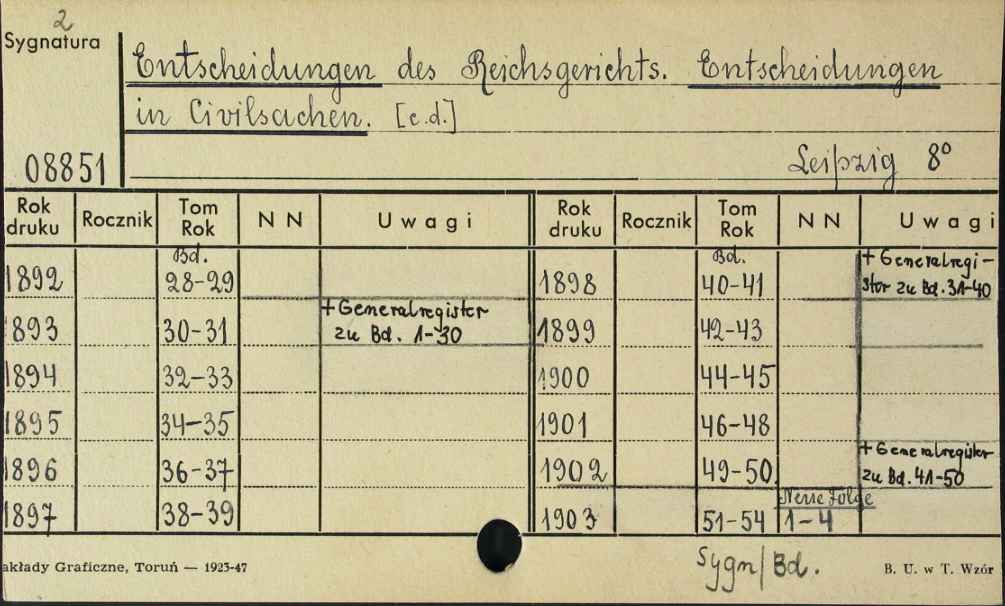 2
Sygnatura
Entscheidungen des Reichsgerichts. Entscheidungen
in Civilsachen. [c.d.]
08851
Leipzig 8°
Rok druku Rocznik Tom Rok N N Uwagi Rok druku Rocznik Tom Rok N N Uwagi
Bd. Bd.
1892 28-29 1898 40-41 + Generalregi-
stor zu Bd. 31-40
1893 30-31 + Generalregister
zu Bd. 1-30 1899 42-43
1894 32-33 1900 44-45
1895 34-35 1901 46-48
1896 36-37 1902 49-50 + Generalregister
zu Bd. 41-50
Neue Folge
1897 38-39 1903 51-54 1-4
akłady Graficzne, Toruń — 1925-47
Sygn/Bd.
B. U. w T. Wzór